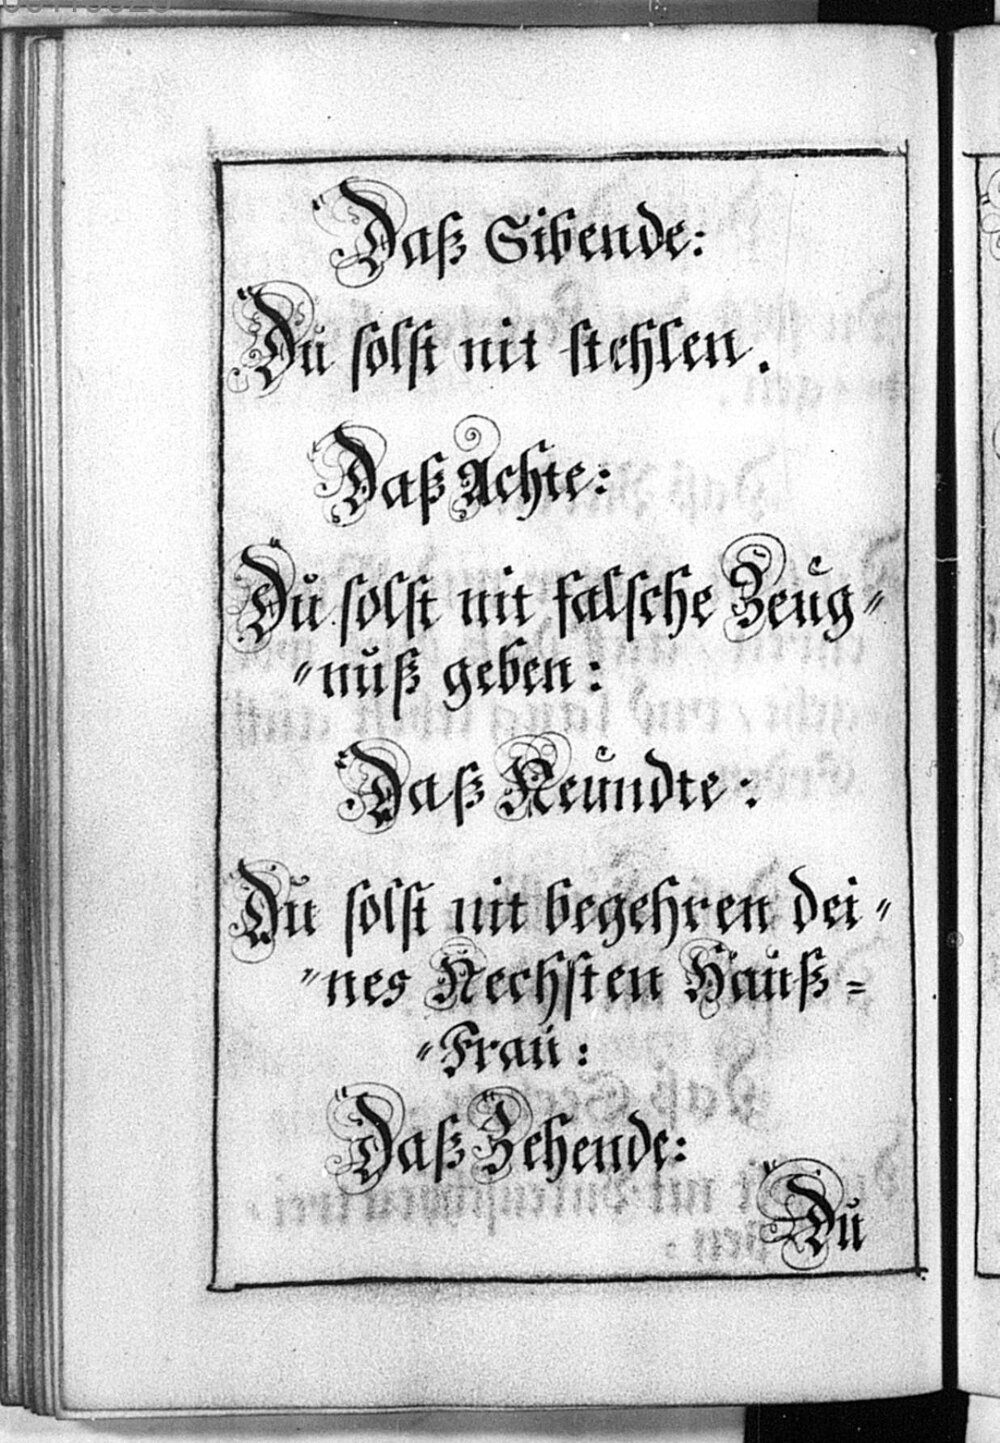 Daß Sibende:
Du solst nit stehlen.
Daß Achte:
Du solst nit falsche Zeug⸗
⸗nuß geben:
Daß Neundte:
Du solst nit begehren dei⸗
⸗nes Nechsten Hauß⸗
⸗Frau:
Daß Zehende:
Du